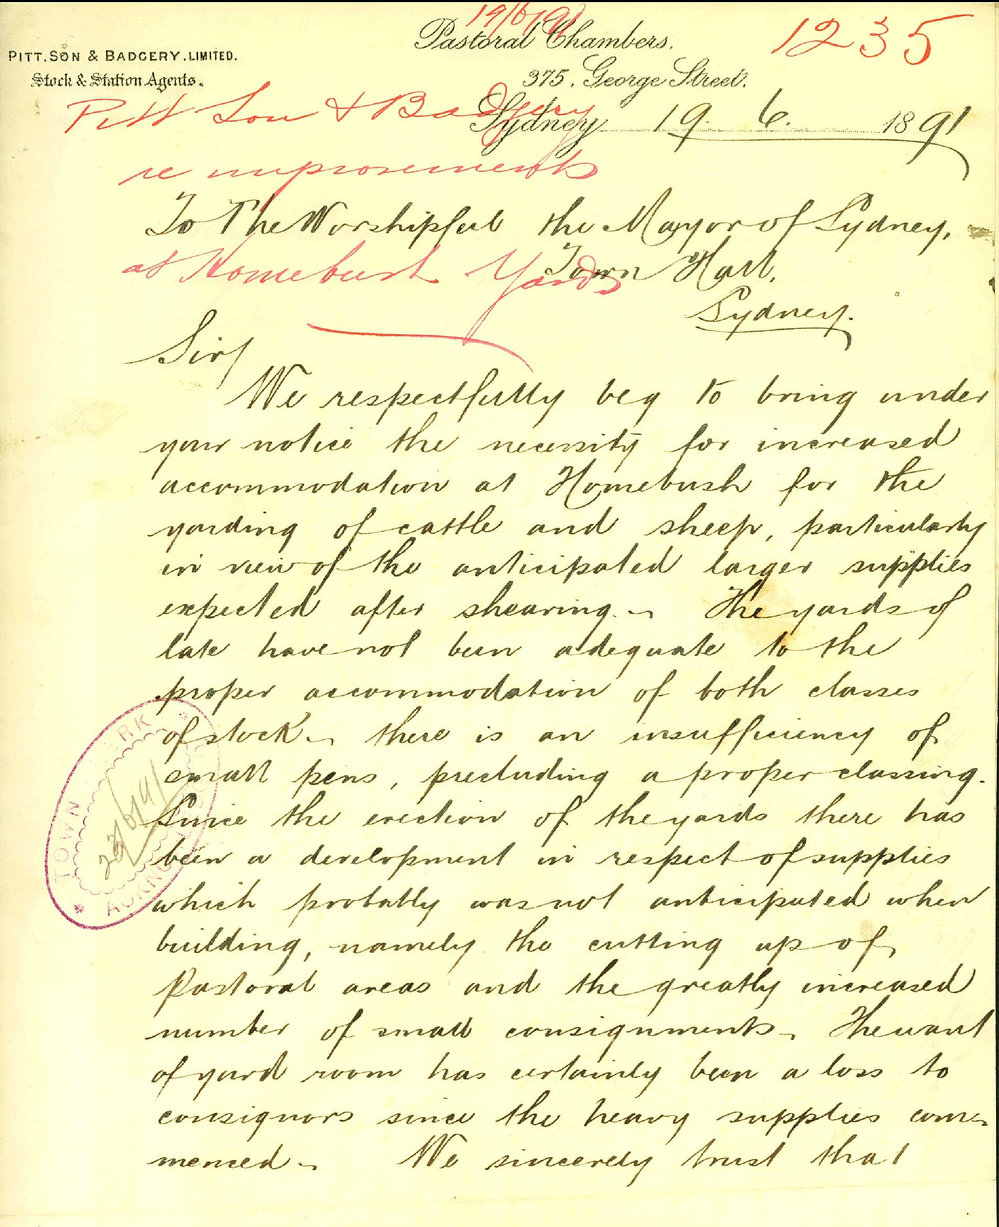 19/6/91
1235
PITT, SON & BADGERY, LIMITED.
Stock & Station Agents.
Pastoral Chambers.
375, George Street.
Sydney 19. 6. 1891
Pitt Son & Badgery
re improvements
at Homebush Yards
To The Worshipful the Mayor of Sydney,
Town Hall.
Sydney.
Sir/
We respectfully beg to bring under
your notice the necessity for increased
accommodation at Homebush for the
yarding of cattle and sheep, particularly
in view of the anticipated larger supplies
expected after shearing. The yards of
late have not been adequate to the
proper accommodation of both classes
of stock. there is an insufficiency of
small pens, precluding a proper classing.
Since the erection of the yards there has
been a development in respect of supplies
which probably was not anticipated when
building, namely the cutting up of
Pastoral areas and the greatly increased
number of small consignments. The want
of yard room has certainly been a loss to
consignors since the heavy supplies com-
menced. We sincerely trust that
TOWN CLERK
23/6/91